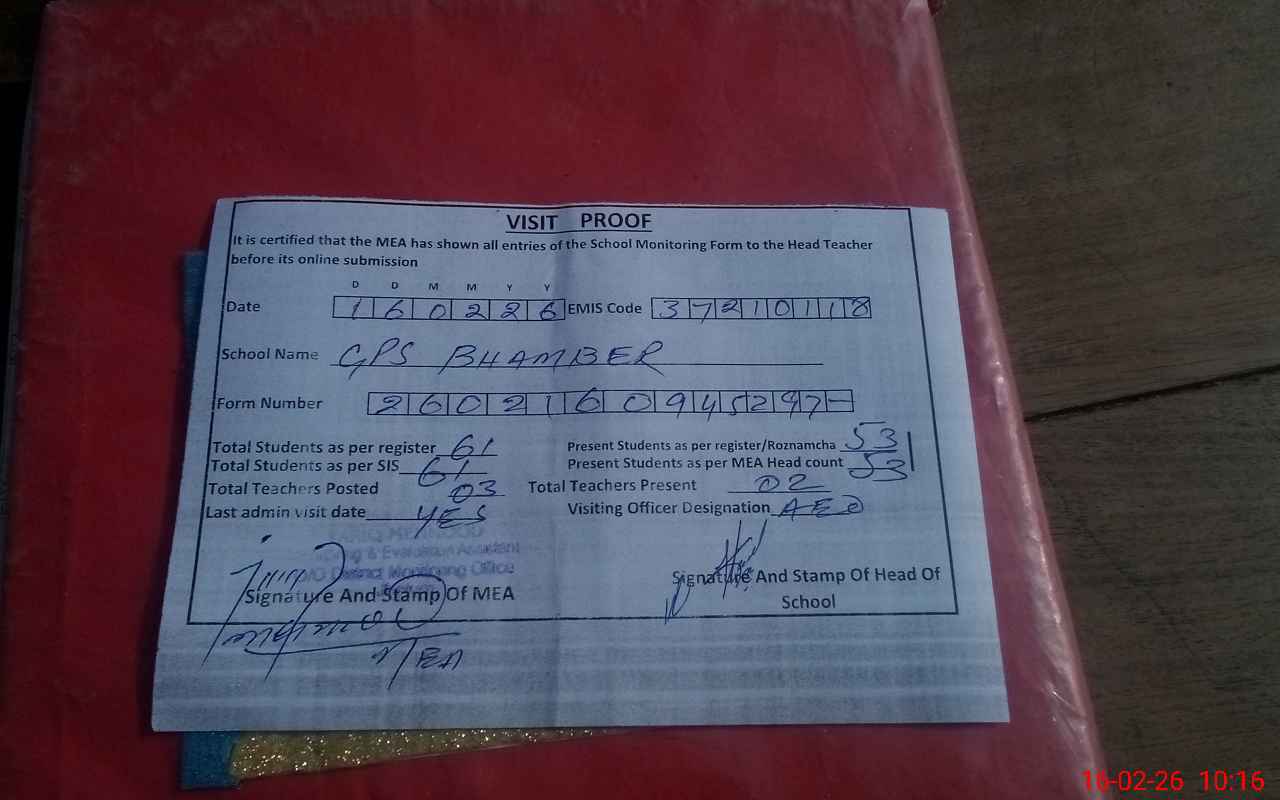 VISIT PROOF
It is certified that the MEA has shown all entries of the School Monitoring Form to the Head Teacher
before its online submission
D D M M Y Y
Date 1 6 0 2 2 6 EMIS Code 3 7 2 1 0 1 1 8
School Name GPS BHAMBER
Form Number 2 6 0 2 1 6 0 9 4 5 2 9 7 -
Total Students as per register 61 Present Students as per register/Roznamcha 53
Total Students as per SIS 61 Present Students as per MEA Head count 53
Total Teachers Posted 03 Total Teachers Present 02
Last admin visit date YES Visiting Officer Designation AEO
& Evaluation Assistant
District Monitoring Office
Signature And Stamp Of MEA Signature And Stamp Of Head Of
School
MEA
16-02-26 10:16